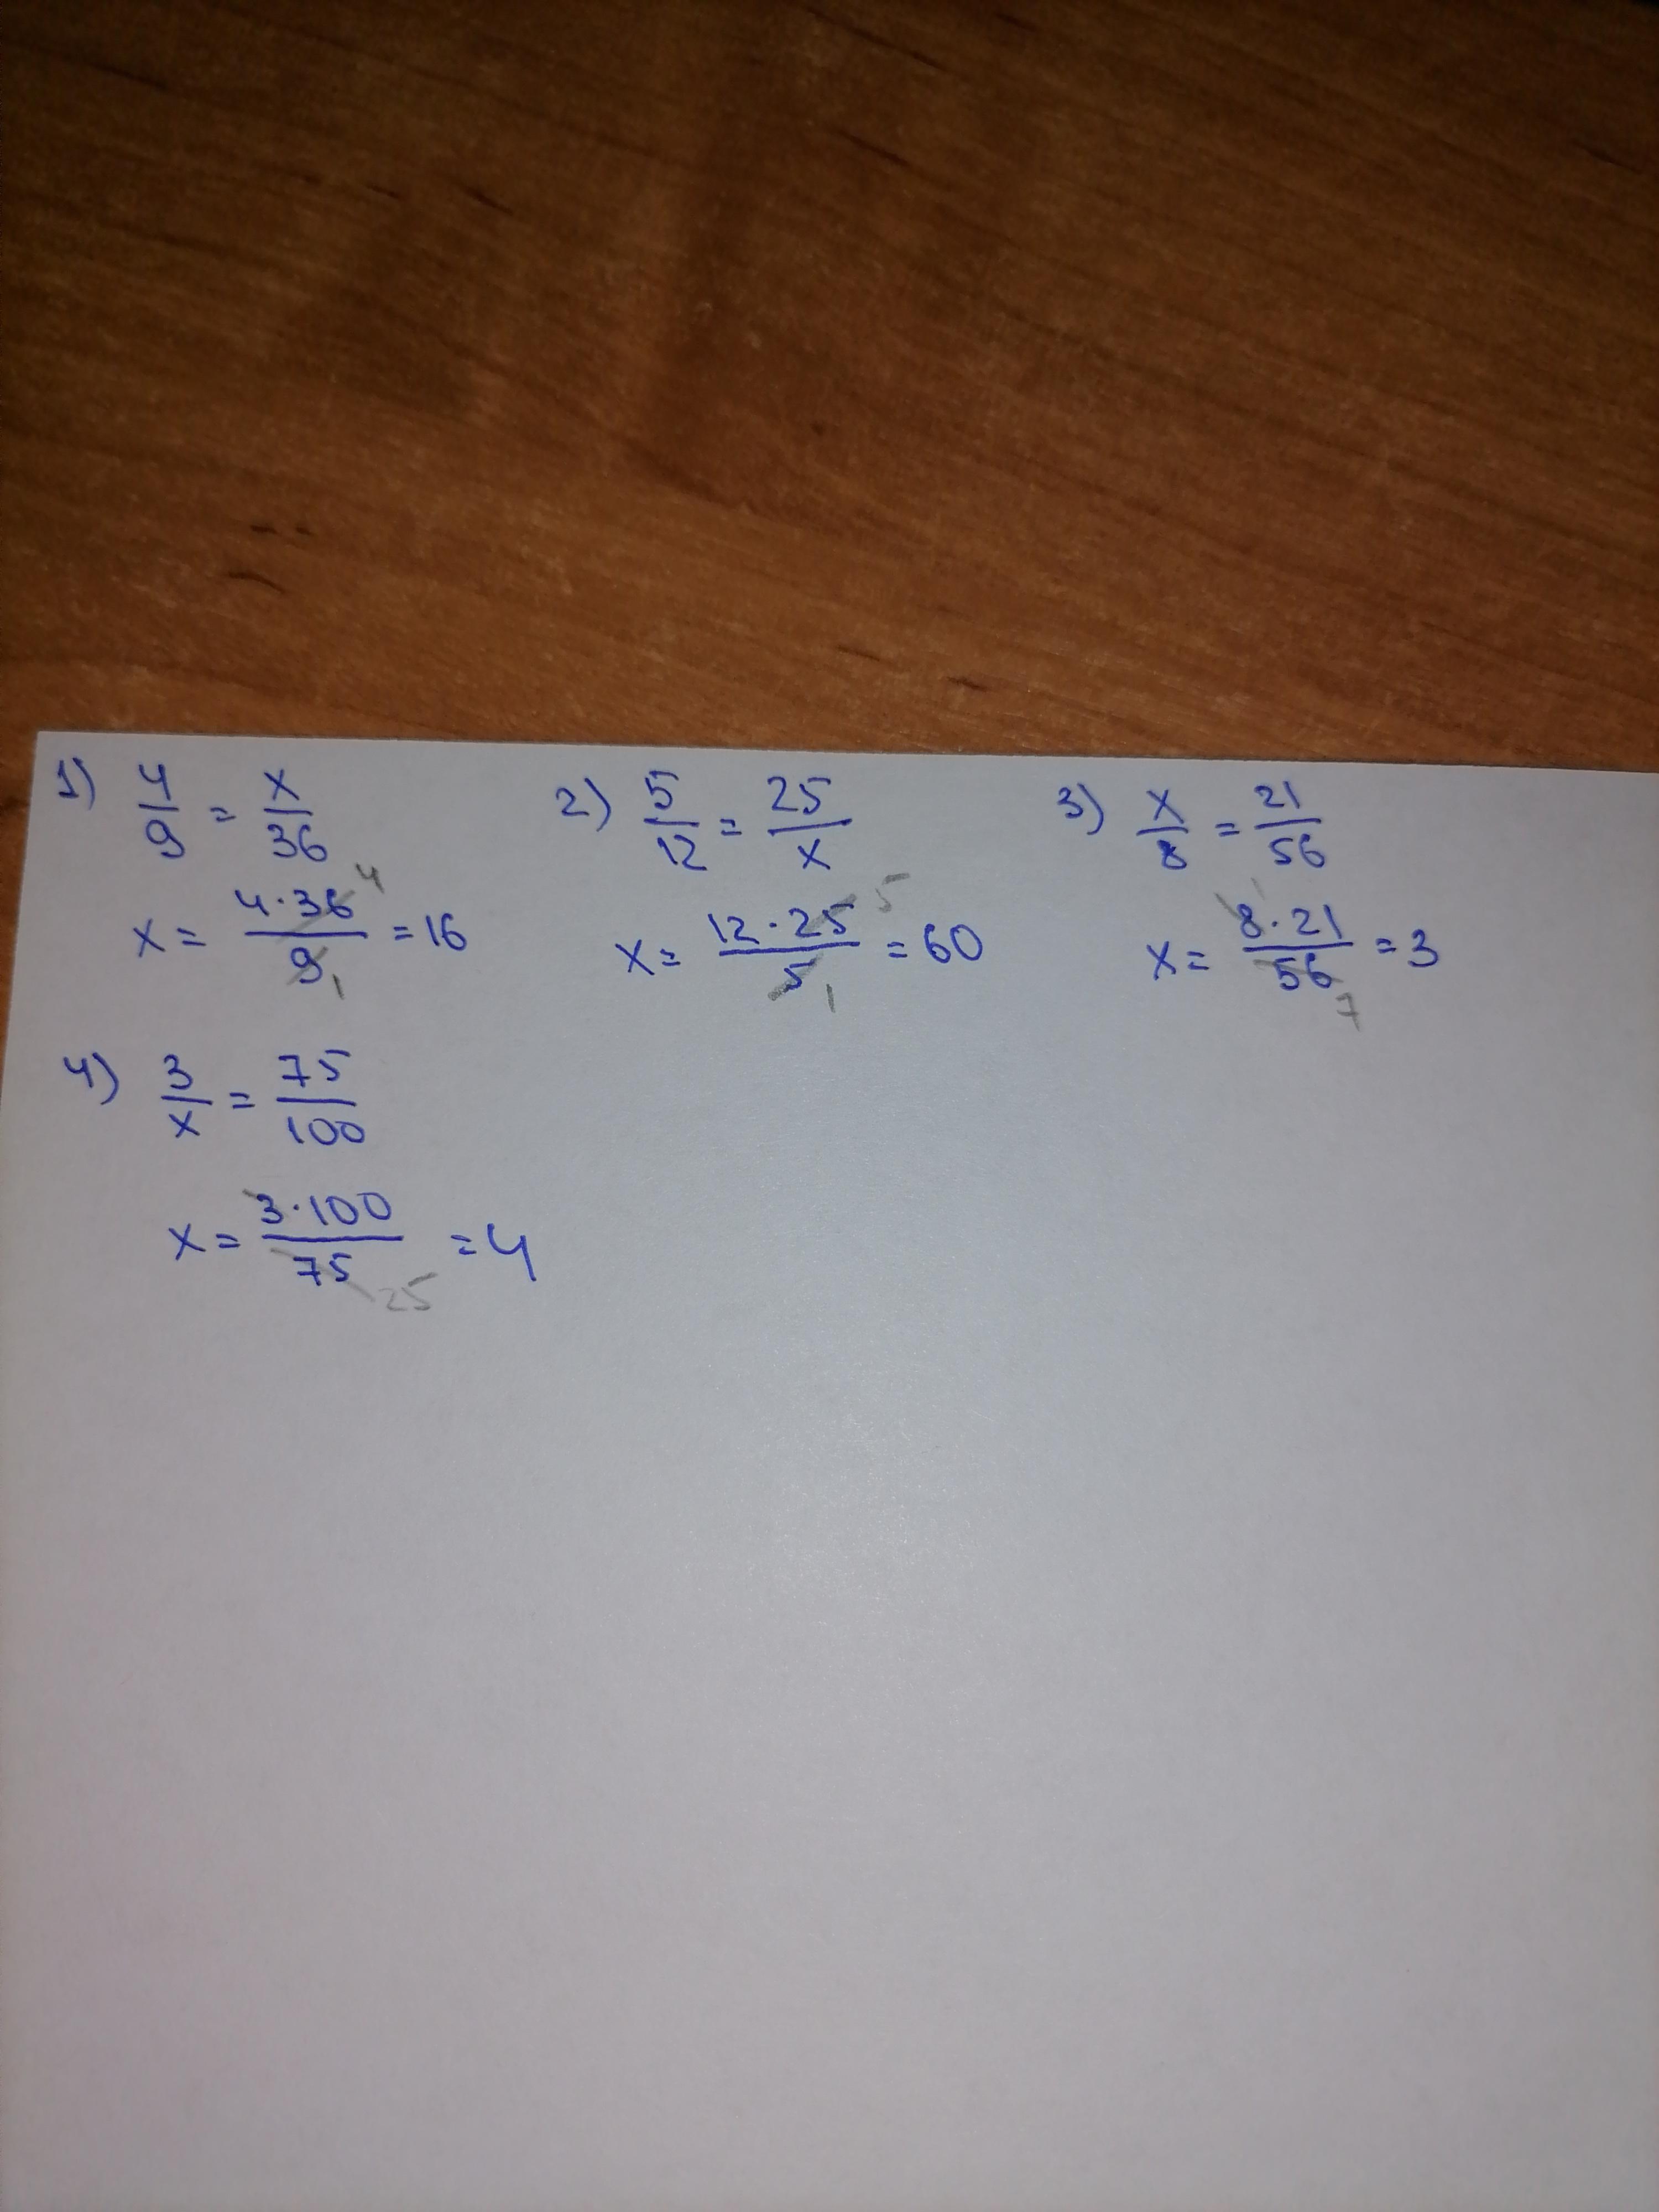 1) 4/9 = x/36
x = 4·36/9 = 16
4
1
2) 5/12 = 25/x
x = 12·25/5 = 60
5
1
3) x/8 = 21/56
x = 8·21/56 = 3
1
7
4) 3/x = 75/100
x = 3·100/75 = 4
25